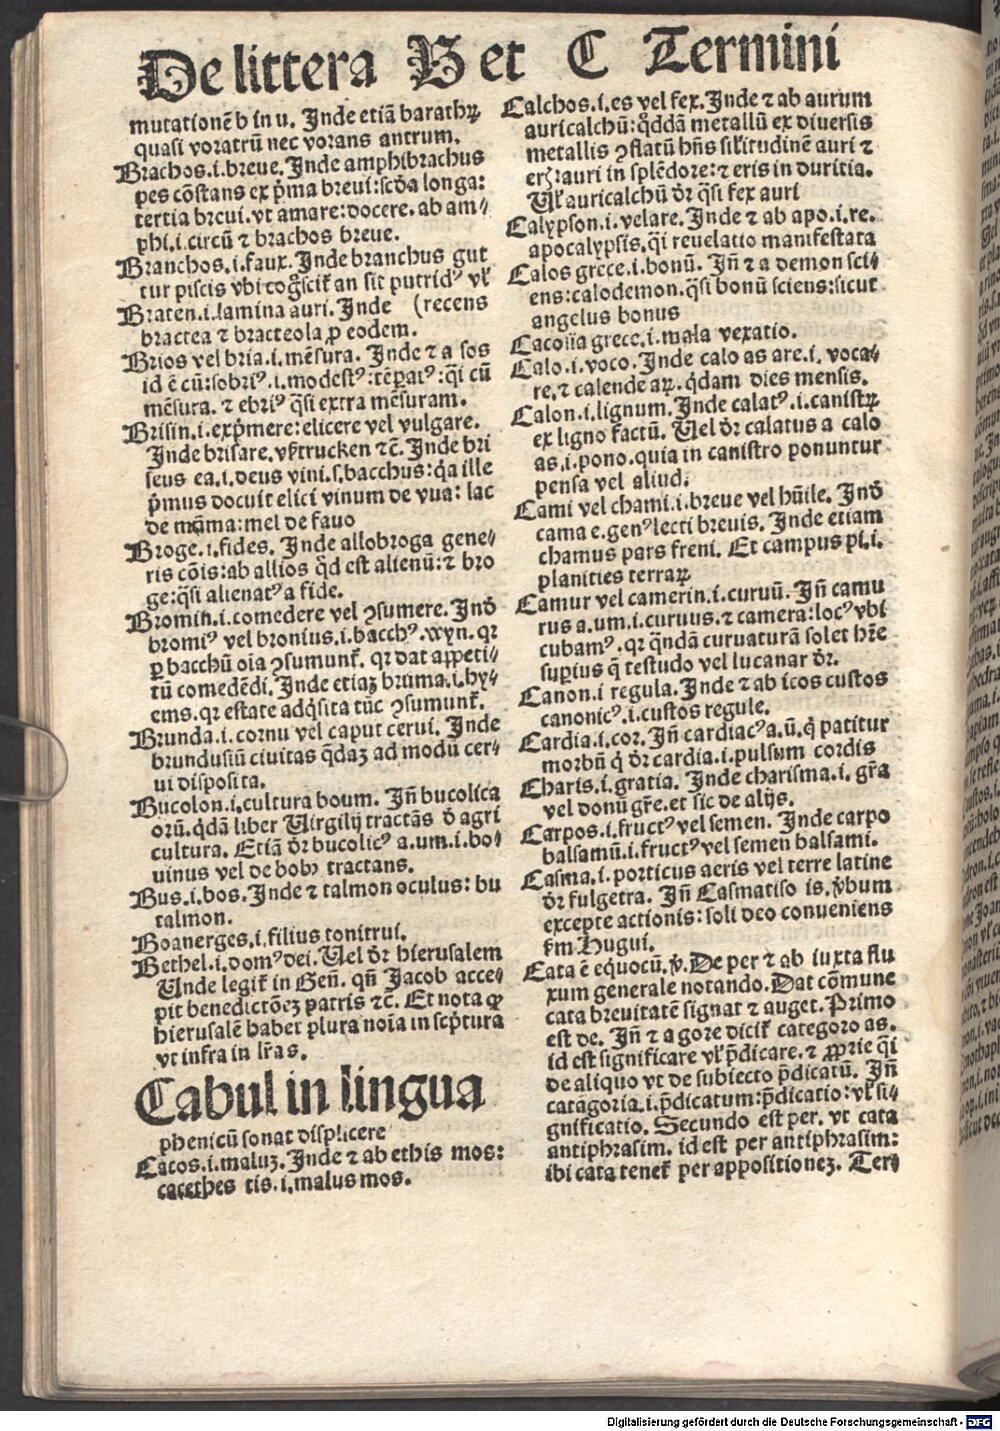 De littera B et C Termini
mutationē b in u. Inde etiā barathꝝ
quasi voratrū nec vorans antrum.
Brachos.i.breue. Inde amphibrachus
pes cōstans ex pͥma breui:scďa longa:
tertia breui.vt amare:docere.ab am⸗
phi.i.circū ⁊ brachos breue.
Branchos.i.faux. Inde branchus gut
tur piscis vbi cogͦscitͬ an sit putridꝰ vl̓
Braten.i.lamina auri. Inde (recens
bractea ⁊ bracteola ꝑ eodem.
Brios vel bria.i.mēsura. Inde ⁊ a sos
id ē cū:sobriꝰ.i.modestꝰ:tēꝑatꝰ:q̄i cū
mēsura. ⁊ ebriꝰ q̄si extra mēsuram.
Brisin.i.expͥmere:elicere vel vulgare.
Inde brisare.vßtrucken ⁊c̄. Inde bri
seus ea.i.deus vini.s.bacchus:qͥa ille
pͥmus docuit elici vinum de vua: lac
de māma:mel de fauo
Broge.i.fides. Inde allobroga gene⸗
ris cōis:ab allios qͦd est alienū:⁊ bro
ge:q̄si alienatꝰ a fide.
Bromin.i.comedere vel ꝯsumere. Inď
bromiꝰ vel bronius.i.bacchꝰ.wyn.qꝛ
ꝑ bacchū oīa ꝯsumunt̄. qꝛ dat appeti⸗
tū comedēdi. Inde etiaꝫ bruma.i.hy⸗
ems.qꝛ estate adqͥsita tūc ꝯsumunt̄.
Brunda.i.cornu vel caput cerui. Inde
brundusiū ciuitas qͥdaꝫ ad modū cer⸗
ui disposita.
Bucolon.i.cultura boum. Iñ bucolica
orū.qͥdā liber Virgilij tractās ď agri
cultura. Etiā ďr bucolicꝰ a.um.i.bo⸗
uinus vel de bobꝰ tractans.
Bus.i.bos. Inde ⁊ talmon oculus: bu
talmon.
Boanerges.i.filius tonitrui.
Bethel.i.domꝰ dei. Vel ďr hierusalem
Vnde legit̄ in Geñ. qñ Jacob acce⸗
pit benedictōeꝫ patris ⁊c̄. Et nota ꝙ
hierusalē habet plura noīa in scpͥtura
vt infra in lr̄as.
Cabul in lingua
phenicū sonat displicere
Cacos.i.maluꝫ. Inde ⁊ ab ethis mos:
cacethes tis.i.malus mos.
Calchos.i.es vel fex. Inde ⁊ ab aurum
auricalchū:qͦddā metallū ex diuersis
metallis ꝯflatū hn̄s sil̓itudinē auri ⁊
erꝫ:auri in splēdore:⁊ eris in duritia.
Vl̓ auricalchū ďr q̄si fex auri
Calypson.i.velare. Inde ⁊ ab apo.i.re.
apocalypsis.q̄i reuelatio manifestata
Calos grece.i.bonū. Iñ ⁊ a demon sci⸗
ens:calodemon.q̄si bonū sciens:sicut
angelus bonus
Cacoīia grece.i.mala vexatio.
Calo.i.voco. Inde calo as are.i. voca⸗
re.⁊ calende aꝝ. qͥdam dies mensis.
Calon.i.lignum. Inde calatꝰ.i.canistꝝ
ex ligno factū. Uel ďr calatus a calo
as.i.pono.quia in canistro ponuntur
pensa vel aliud.
Cami vel chami.i.breue vel hūile. Inď
cama e.genꝰ lecti breuis. Inde etiam
chamus pars freni. Et campus pi.i.
planities terraꝝ
Camur vel camerin.i.curuū. Iñ camu
rus a.um.i.curuus.⁊ camera:locꝰ vbi
cubamꝰ.qꝛ qͣndā curuaturā solet hr̄e
suꝑius q̄ testudo vel lucanar ďr.
Canon.i regula. Inde ⁊ ab icos custos
canonicꝰ.i.custos regule.
Cardia.i.cor. Iñ cardiacꝰ a.ū.qͥ patitur
morbū qͥ ďr cardia.i.pulsum cordis
Charis.i.gratia. Inde charisma.i. gr̄a
vel donū gr̄e.et sic de alijs.
Carpos.i.fructꝰ vel semen. Inde carpo
balsamū.i.fructꝰ vel semen balsami.
Casma.i.porticus aeris vel terre latine
ďr fulgetra. Iñ Casmatiso is.v̓bum
excepte actionis: soli deo conueniens
fm̄ Hugui.
Cata ē equocū.v̓. De per ⁊ ab iuxta flu
xum generale notando. Dat cōmune
cata breuitatē signat ⁊ auget. Primo
est de. Iñ ⁊ a gore dicit̄ categoro as.
id est significare vl̓ p̄dicare.⁊ ꝓprie q̄i
de aliquo vt de subiecto p̄dicatū. Iñ
catagoria.i.p̄dicatum:p̄dicatio: vl̓ si⸗
gnificatio. Secundo est per. vt cata
antiphrasim. id est per antiphrasim:
ibi cata tenet̄ per appositioneꝫ. Ter⸗
Digitalisierung gefördert durch die Deutsche Forschungsgemeinschaft - DFG